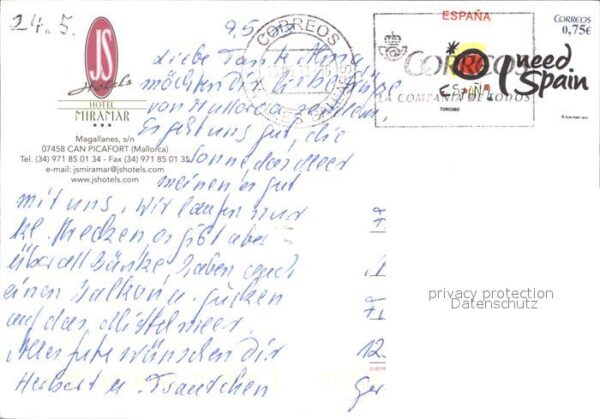 24. 5.
JS
Hotels
HOTEL
MIRAMAR
Magallanes, s/n
07458 CAN PICAFORT (Mallorca)
Tel. (34) 971 85 01 34 - Fax (34) 971 85 01 35
e-mail: jsmiramar@jshotels.com
www.jshotels.com
CORREOS
CORREOS
LA COMPAÑIA DE TODOS
ESPAÑA
CORREOS
0,75€
I need
Spain
ESPAÑA
TURISMO
9.5.
Liebe Tante
möchten Dir liebe Grüße
von Mallorca senden,
Es geht uns gut, die
Sonne das Meer
meinen es gut
mit uns, wir laufen nur
kl. Strecken es gibt aber
überall Bänke, haben auch
einen Balkon u. gucken
auf das Mittelmeer.
Alles Gute wünschen Dir
Herbert u.
12.
Ger
privacy protection
Datenschutz